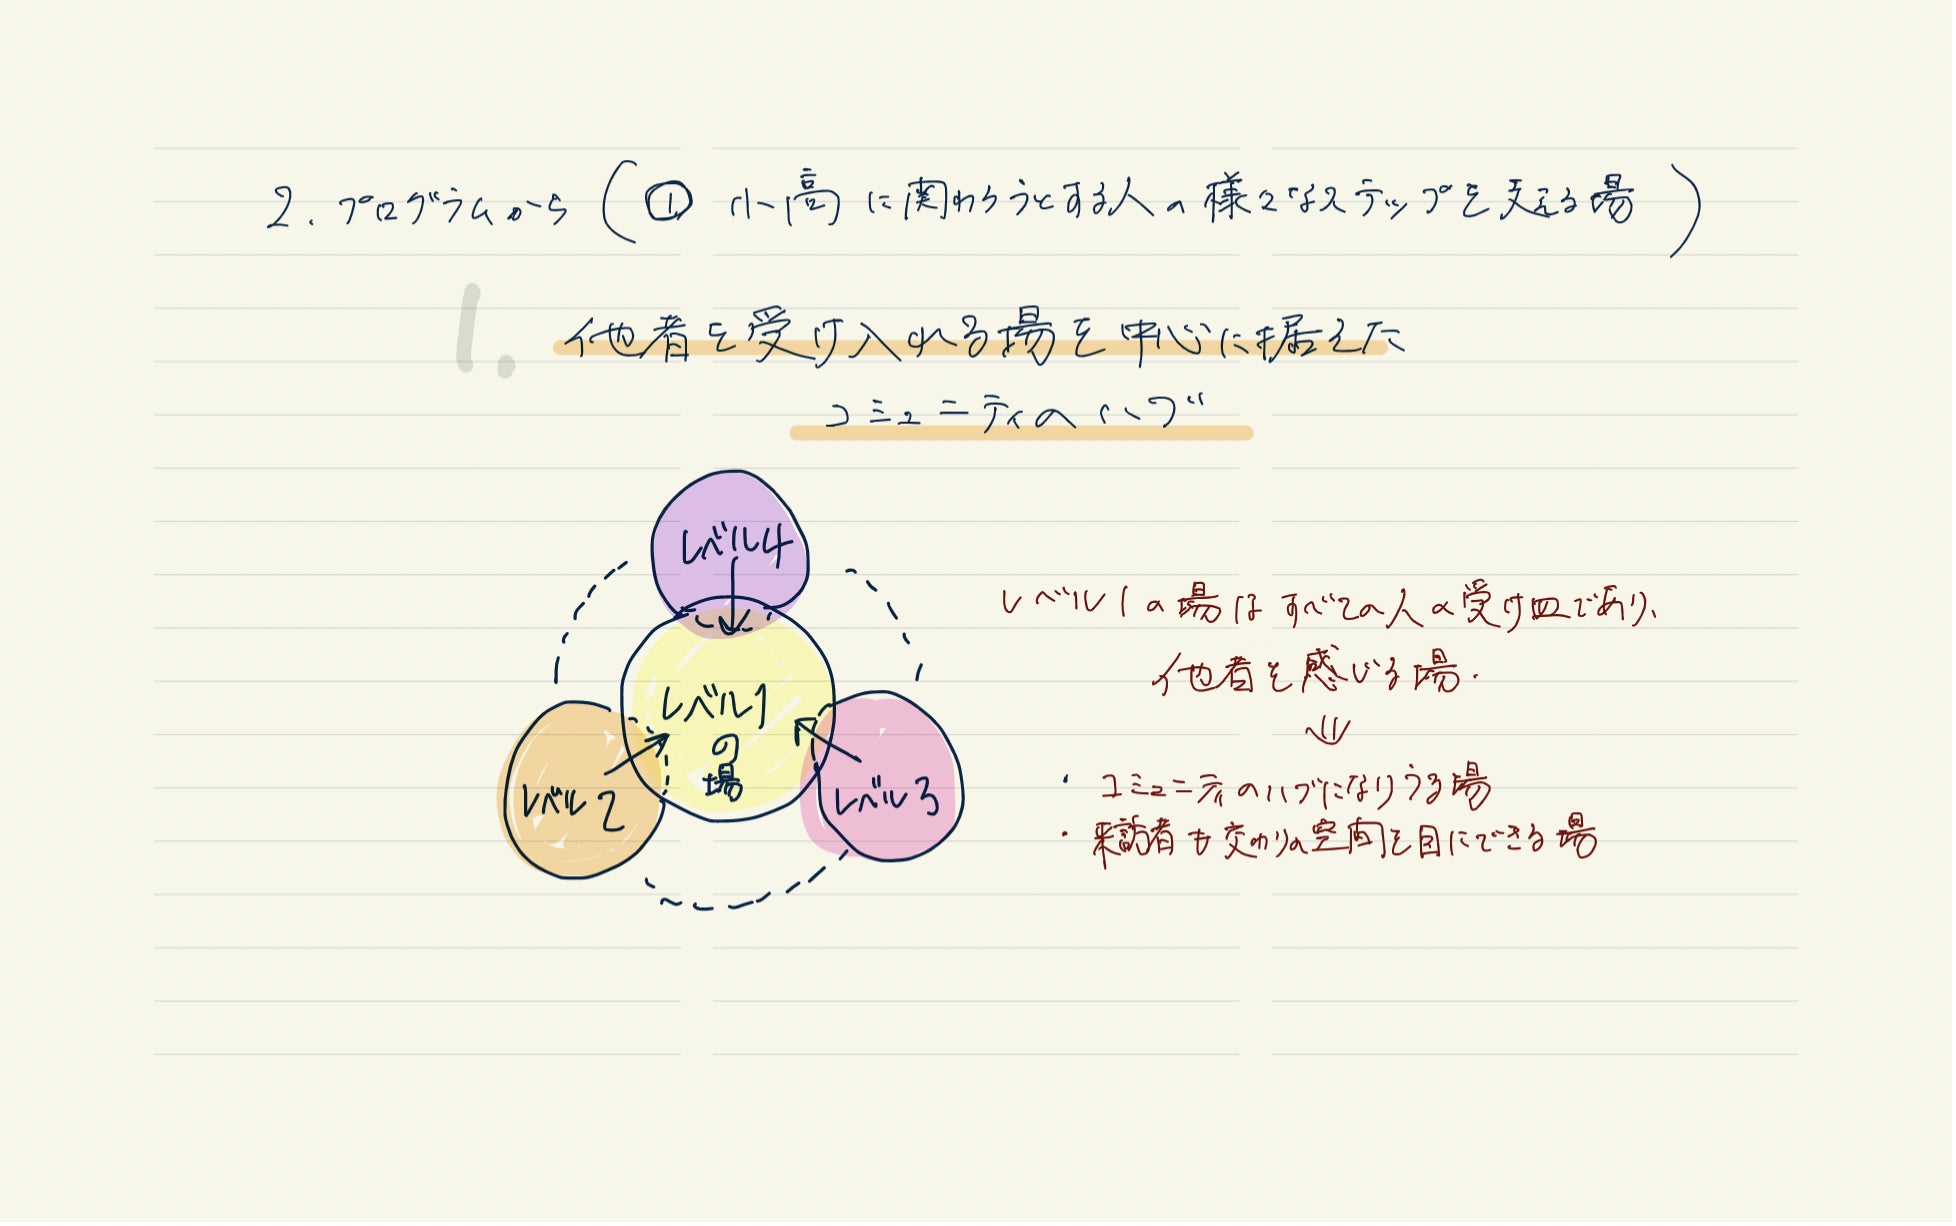 2. プログラムから (① 小高に関わろうとする人の様々なステップを支える場)
1.
他者を受け入れる場を中心に据えた
コミュニティのハブ
レベル4
レベル1
の
場
レベル2
レベル3
レベル1の場はすべての人の受け皿であり、
他者を感じる場.
⇓
・コミュニティのハブになりうる場
・来訪者も交わりの空間を目にできる場